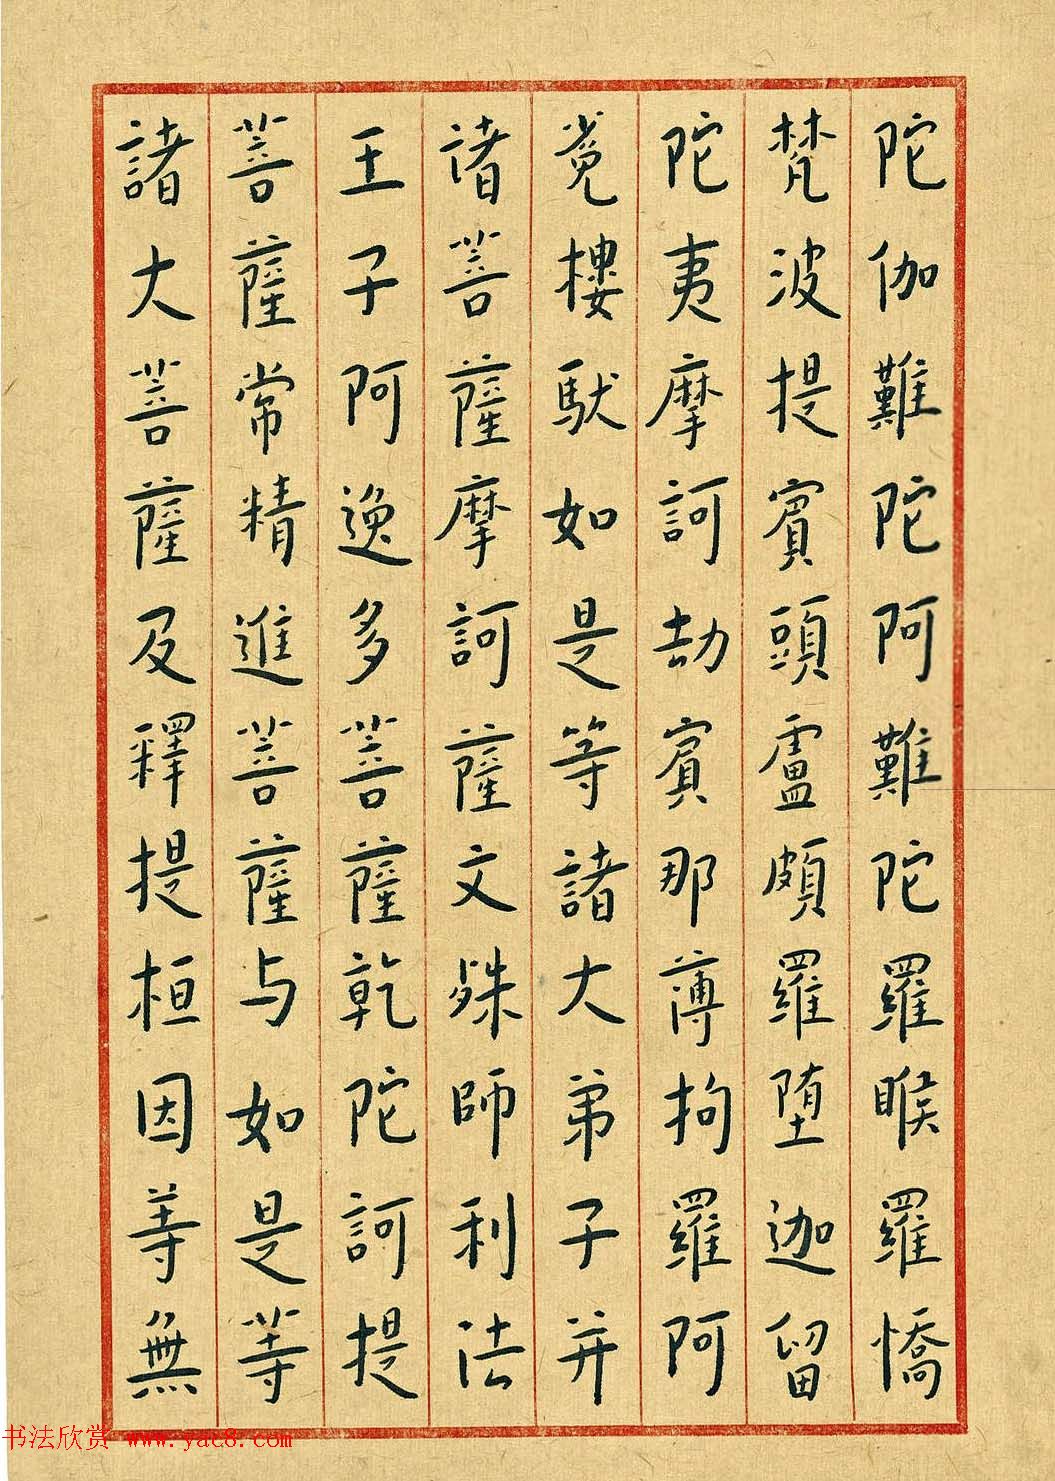 陀伽難陀阿難陀羅睺羅憍
梵波提賓頭盧頗羅堕迦留
陀夷摩訶劫賓那薄拘羅阿
㝹樓馱如是等諸大弟子并
诸菩薩摩訶薩文殊師利法
王子阿逸多菩薩乾陀訶提
菩薩常精進菩薩与如是等
諸大菩薩及釋提桓因等無
书法欣赏 www.yac8.com